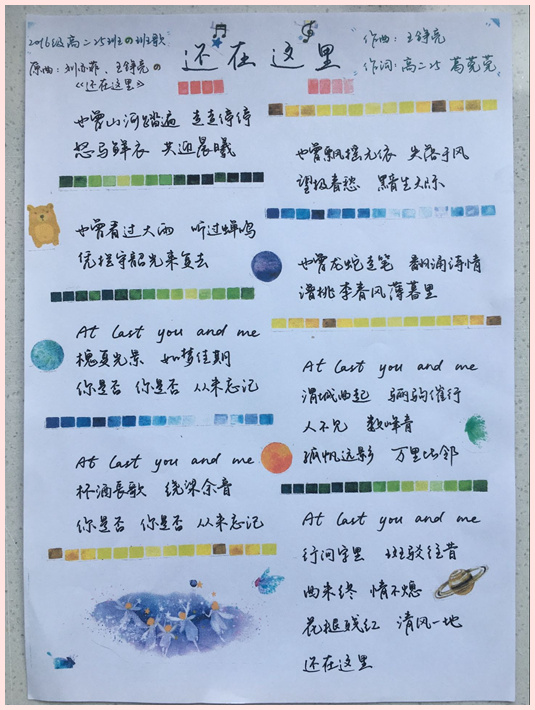 2016级高二25班の班歌
原曲：刘亦菲、王铮亮の
《还在这里》
还在这里
作曲：王铮亮
作词：高二25 葛芫芫
也曾山河踏遍 走走停停
怒马鲜衣 共迎晨曦
也曾看过大雨 听过蝉鸣
凭栏守韶光来复去
At last you and me
槐夏光景 如梦佳期
你是否 你是否 从来忘记
At last you and me
杯酒长歌 绕梁余音
你是否 你是否 从未忘记
也曾飘摇无依 失落于风
望极春愁 黯生天际
也曾龙蛇走笔 翻涌诗情
潜桃李春风薄暮里
At last you and me
渭城曲起 骊驹催行
人不见 数峰青
孤帆远影 万里比邻
At last you and me
行间字里 斑驳往昔
曲未终 情不熄
花褪残红 清风一地
还在这里